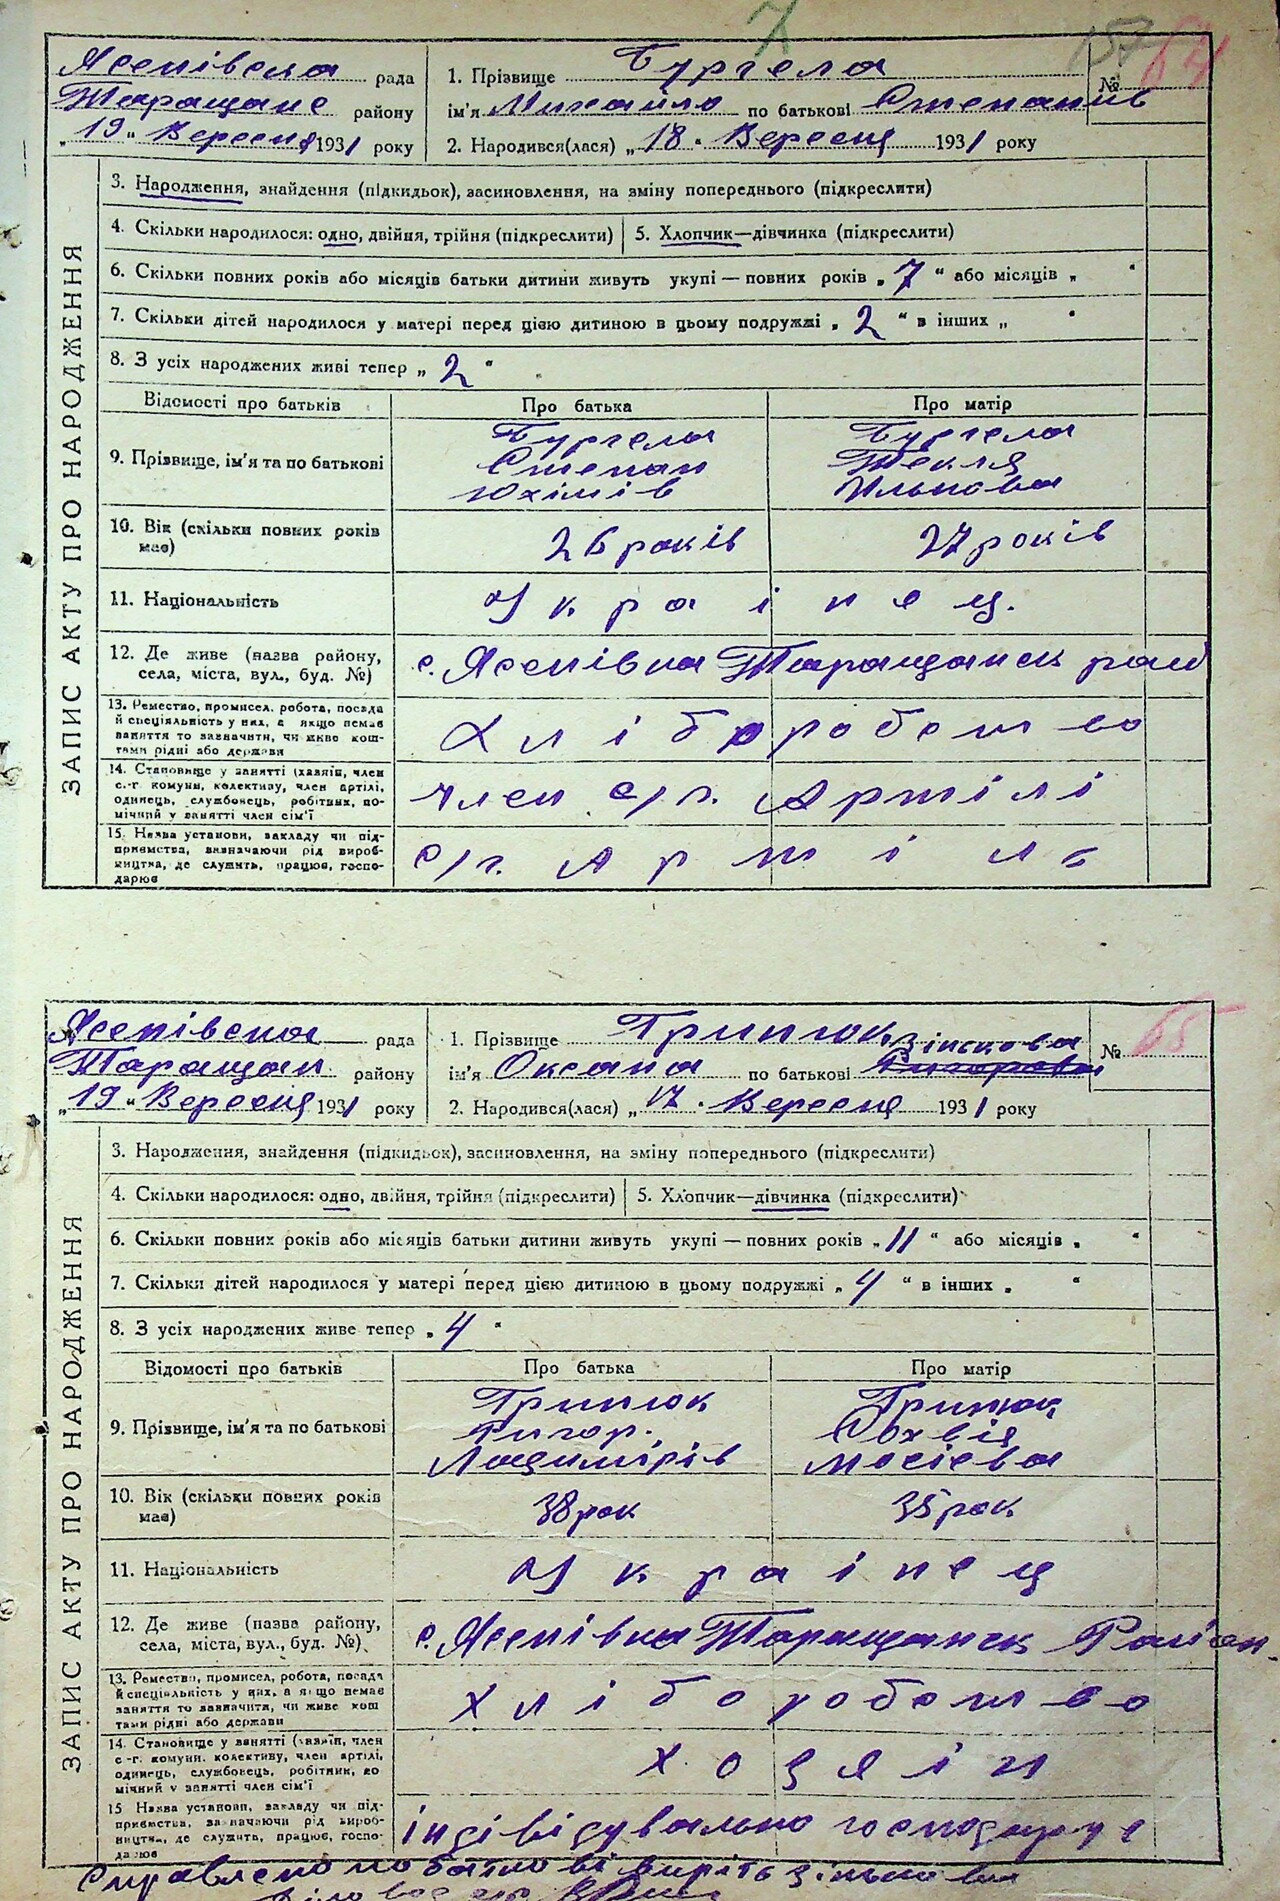 7
157 64
Ясенівска рада
Таращанс району
„19„ Вересня 1931 року
1. Прізвище Бургела №
ім'я Михайло по батькові Степанів
2. Народився(лася) „18„ Вересня 1931 року
ЗАПИС АКТУ ПРО НАРОДЖЕННЯ
3. Народження, знайдення (підкидьок), засиновлення, на зміну попереднього (підкреслити)
4. Скільки народилося: одно, двійня, трійня (підкреслити) 5. Хлопчик—дівчинка (підкреслити)
6. Скільки повних років або місяців батьки дитини живуть укупі — повних років „7“ або місяців „ “
7. Скільки дітей народилося у матері перед цією дитиною в цьому подружжі „2“ в інших „ “
8. З усіх народжених живі тепер „2“
Відомості про батьків Про батька Про матір
9. Прізвище, ім'я та по батькові
Бургела Бургела
Степан Текля
Юхімів Илькова
10. Вік (скільки повних років має) 26 років 27 років
11. Національність Українец.
12. Де живе (назва району, села, міста, вул., буд. №) с. Ясенівка Таращанск рай
13. Ремество, промисел, робота, посада й спеціяльність у них, а якщо немає заняття то зазначити, чи живе коштами рідні або держави
Хліборобство
14. Становище у занятті (хазяїн, член с.-г. комуни, колективу, член артілі, одинець, службовець, робітник, помічний у занятті член сім'ї
член с/г. Артілі
15. Назва установи, закладу чи підприємства, зазначаючи рід виробництва, де служить, працює, господарює
с/г. Артіль
Ясенівска рада
Таращан району
„19„ Вересня 1931 року
1. Прізвище Грипюк № 65
Зінькова
ім'я Оксана по батькові Григорова
2. Народився(лася) „17„ Вересня 1931 року
ЗАПИС АКТУ ПРО НАРОДЖЕННЯ
3. Народження, знайдення (підкидьок), засиновлення, на зміну попереднього (підкреслити)
4. Скільки народилося: одно, двійня, трійня (підкреслити) 5. Хлопчик—дівчинка (підкреслити)
6. Скільки повних років або місяців батьки дитини живуть укупі — повних років „11“ або місяців „ “
7. Скільки дітей народилося у матері перед цією дитиною в цьому подружжі „4“ в інших „ “
8. З усіх народжених живе тепер „4“
Відомості про батьків Про батька Про матір
9. Прізвище, ім'я та по батькові
Грипюк Грипюк
Григор.
Мосієва
10. Вік (скільки повних років має) 38 рок 35 рок
11. Національність Українец
12. Де живе (назва району, села, міста, вул., буд. №) с. Ясенівка Таращанск Район.
13. Ремество, промисел, робота, посада й спеціяльність у них, а якщо немає заняття то зазначити, чи живе коштами рідні або держави
хліборобство
14. Становище у занятті (хазяїн, член с.-г. комуни, колективу, член артілі, одинець, службовець, робітник, помічний у занятті член сім'ї
хозяін
15 Назва установи, закладу чи підприємства, зазначаючи рід виробництва, де служить, працює, господарює
індівідувально господарує
Справлено по батькові вирить Зінькова